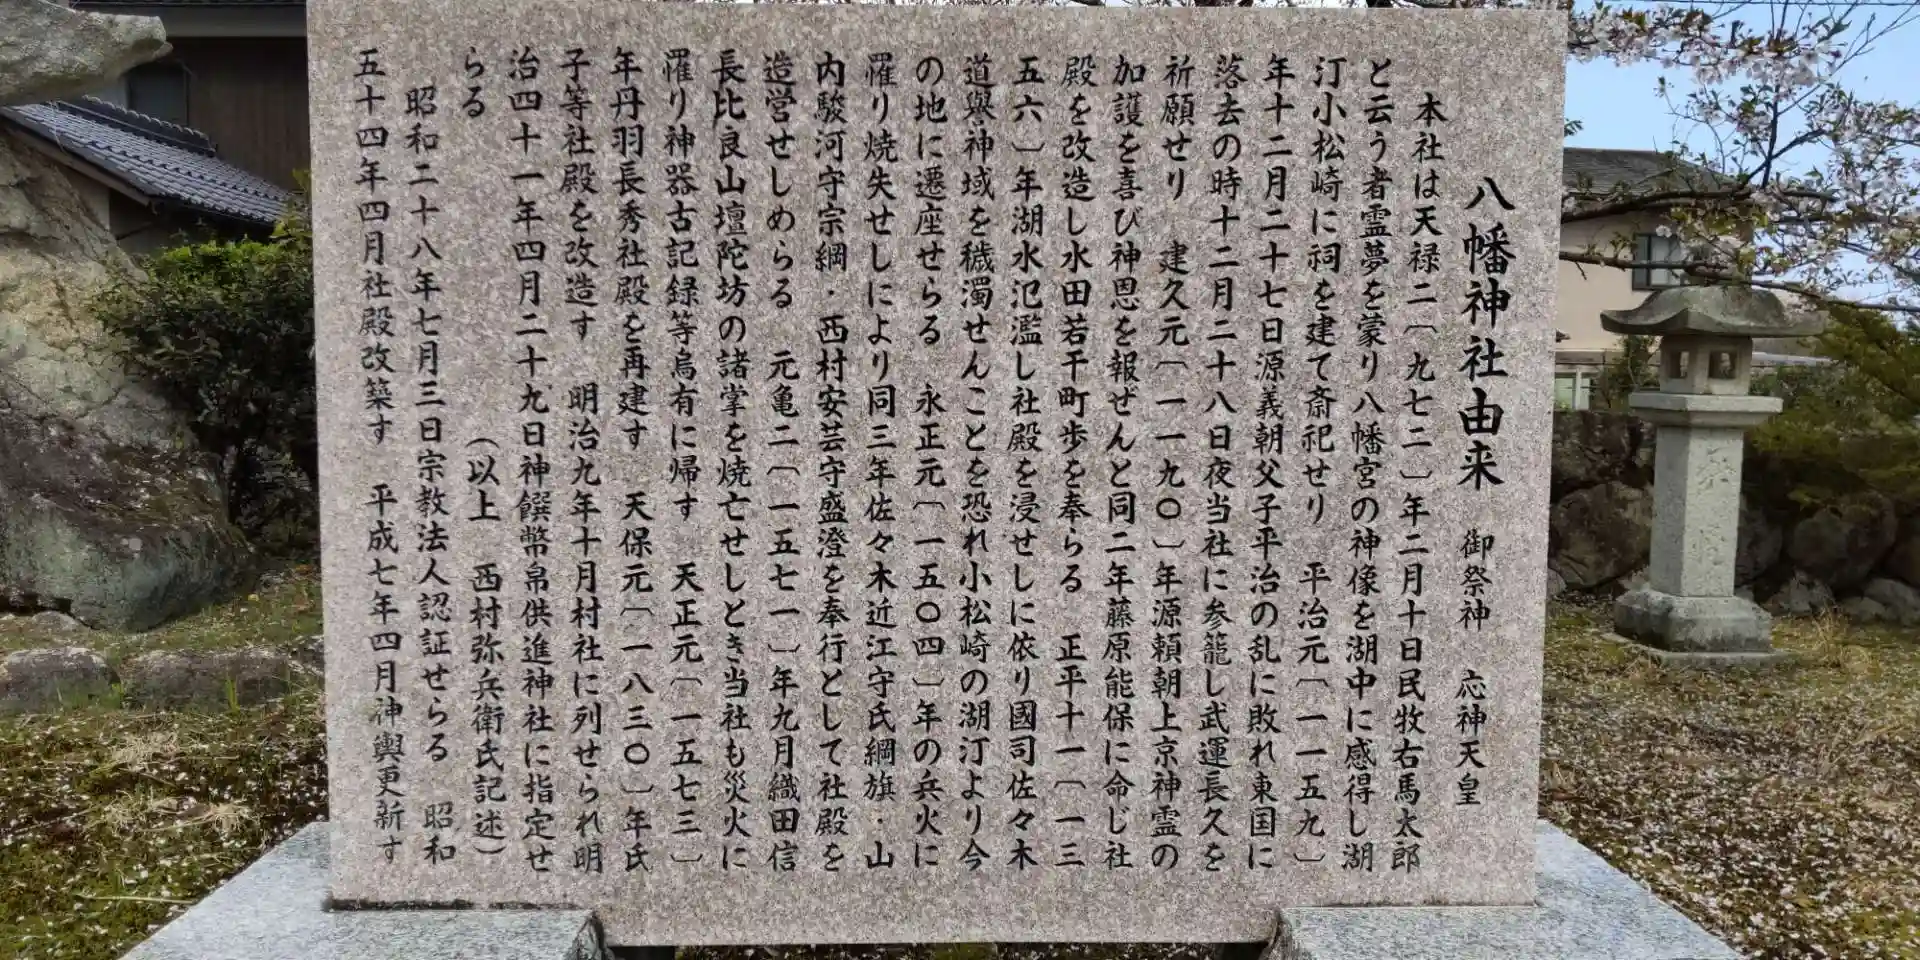 八幡神社由来 御祭神 応神天皇
本社は天禄二〔九七二〕年二月十日民牧右馬太郎
と云う者霊夢を蒙り八幡宮の神像を湖中に感得し湖
汀小松崎に祠を建て斎祀せり 平治元〔一一五九〕
年十二月二十七日源義朝父子平治の乱に敗れ東国に
落去の時十二月二十八日夜当社に参籠し武運長久を
祈願せり 建久元〔一一九〇〕年源頼朝上京神霊の
加護を喜び神恩を報ぜんと同二年藤原能保に命じ社
殿を改造し水田若干町歩を奉らる 正平十一〔一三
五六〕年湖水氾濫し社殿を浸せしに依り國司佐々木
道譽神域を穢濁せんことを恐れ小松崎の湖汀より今
の地に遷座せらる 永正元〔一五〇四〕年の兵火に
罹り焼失せしにより同三年佐々木近江守氏綱旗・山
内駿河守宗綱・西村安芸守盛澄を奉行として社殿を
造営せしめらる 元亀二〔一五七一〕年九月織田信
長比良山壇陀坊の諸掌を焼亡せしとき当社も災火に
罹り神器古記録等烏有に帰す 天正元〔一五七三〕
年丹羽長秀社殿を再建す 天保元〔一八三〇〕年氏
子等社殿を改造す 明治九年十月村社に列せられ明
治四十一年四月二十九日神饌幣帛供進神社に指定せ
らる (以上 西村弥兵衛氏記述)
昭和二十八年七月三日宗教法人認証せらる 昭和
五十四年四月社殿改築す 平成七年四月神輿更新す